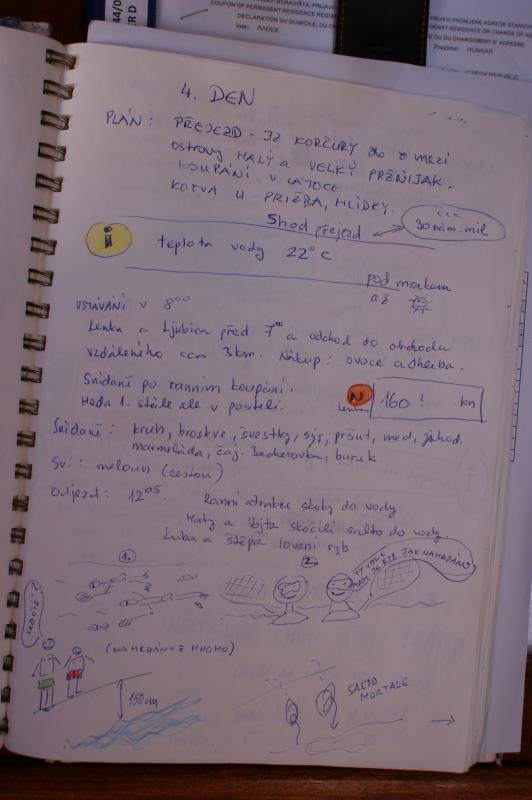 COUPON OF PERMANENT RESIDENCE REGIS
DÉCLARATION DU DOMICILE, DU C
Ime: RADEK
PRIJAVI PROMJENE ADRESE STANO
Prezime:
4. DEN
PLÁN: PŘEJEZD - IZ KORČURY do mezi
ostrovy MALÝ a VELKÝ PRŽNIJAK.
KOUPÁNÍ V ZÁTOCE
KOTVA U PRIŽBA, HLÍDKY.
5hod přejezd
cca
30 nám. mil
i
teplota vody 22°C
pod mrakem
až
VSTÁVÁNÍ v 8 00
Lenka a Ljubica před 7 00 a odchod do obchodu
vzdáleného cca 3km. Nákup: ovoce a chleba.
Snídaně po ranním koupání.
Heda 1. stále ale v posteli.
N
Lenka
160 ? kn
Snídaně: kruh, broskve, švestky, sýr, pršut, med, jahod.
marmeláda, čaj. Becherovka, burek
Sv.: meloun (cestou)
Odjezd: 12 05. Ranní atrakce skoky do vody
Maty a Vojta skočili salto do vody
Kuba a Štěpa lovení ryb
1.
2.
JAK NAHRDÁNO
(NAHRDÁNO = MNOHO)
150cm
SALTO
MORTALE